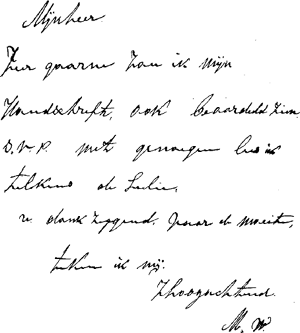 Mijnheer
Zeer gaarne zou ik mijn
Handschrift, ook beoordeeld zien.
S.V.P. met genoegen lees ik
telkens de Lelie.
u dankzeggend voor de moeite,
teken ik mij.
Hoogachtend
M. W.